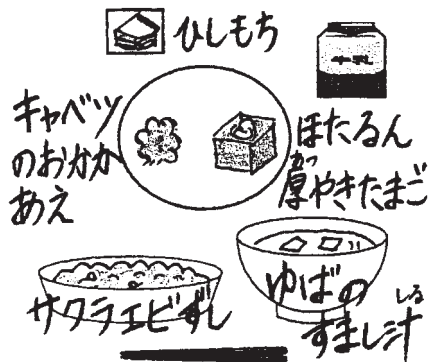 ひしもち
牛乳
キャベツ
のおかか
あえ
ほたるん
厚やきたまご
あつ
サクラエビずし
ゆばの
すまし汁
しる